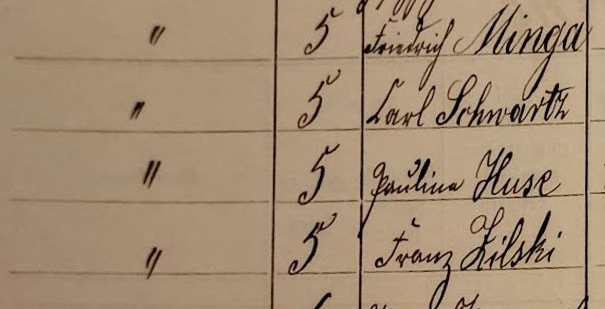 " 5 Friedrich Minga
" 5 Carl Schwartz
" 5 Paulina Huse
" 5 Franz Zilski